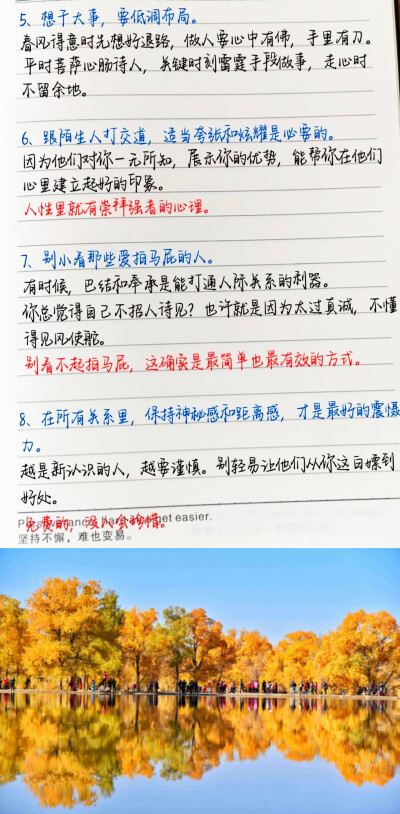 5、想干大事，要低调布局。
春风得意时先想好退路，做人要心中有佛，手里有刀。
平时菩萨心肠待人，关键时刻雷霆手段做事，走心时
不留余地。
6、跟陌生人打交道，适当夸张和炫耀是必要的。
因为他们对你一无所知，展示你的优势，能帮你在他们
心里建立起好的印象。
人性里就有崇拜强者的心理。
7、别小看那些爱拍马屁的人。
有时候，巴结和奉承是能打通人际关系的利器。
你总觉得自己不招人待见？也许就是因为太过真诚，不懂
得见风使舵。
别看不起拍马屁，这确实是最简单也最有效的方式。
8、在所有关系里，保持神秘感和距离感，才是最好的震慑
力。
越是新认识的人，越要谨慎。别轻易让他们从你这白嫖到
好处。
免费的，没人会珍惜。
get easier.
坚持不懈，难也变易。